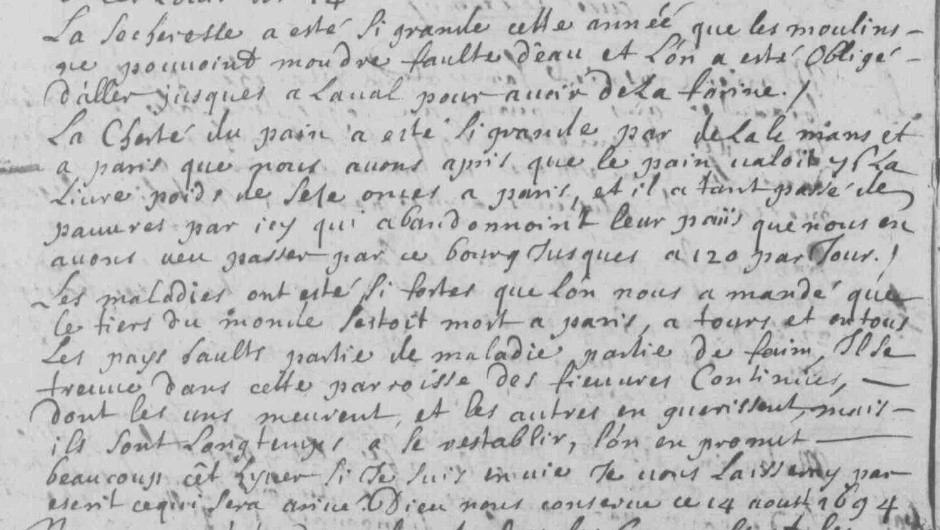 La secheresse a esté si grande cette année que les moulins
ne pouvoint moudre faulte d'eau et l'on a esté obligé
d'aller jusques a Laval pour avoir de la farine./
La Cherté du pain a esté si grande par de la le mans et
a paris que nous avons apris que le pain valoit 7 s La
Livre poids de sese onces a paris, et il a tant passé de
pauvres par icy qui abandonnoint leur païs que nous en
avons veu passer par ce bourg Jusques a 120 par Jour./
Les maladies ont esté si fortes que l'on nous a mandé que
le tiers du monde s'estoit mort a paris, a tours et en tous
Les pays haults partie de maladie partie de faim, Il se
treuve dans cette parroisse des fievres Continües,
dont les uns meurent, et les autres en guerissent, mais
ils sont Longtemps a se restablir, l'on en promet
beaucoup cêt hyver si Je suis en vie Je vous Laisseray par
escrit ce qui sera arivé. Dieu nous conserve ce 14 aoust 1694